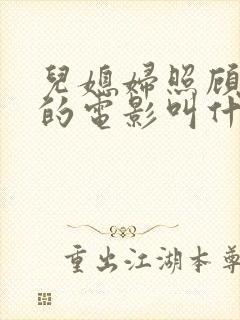 兒媳婦照顧
的電影叫什
重出江湖本尊